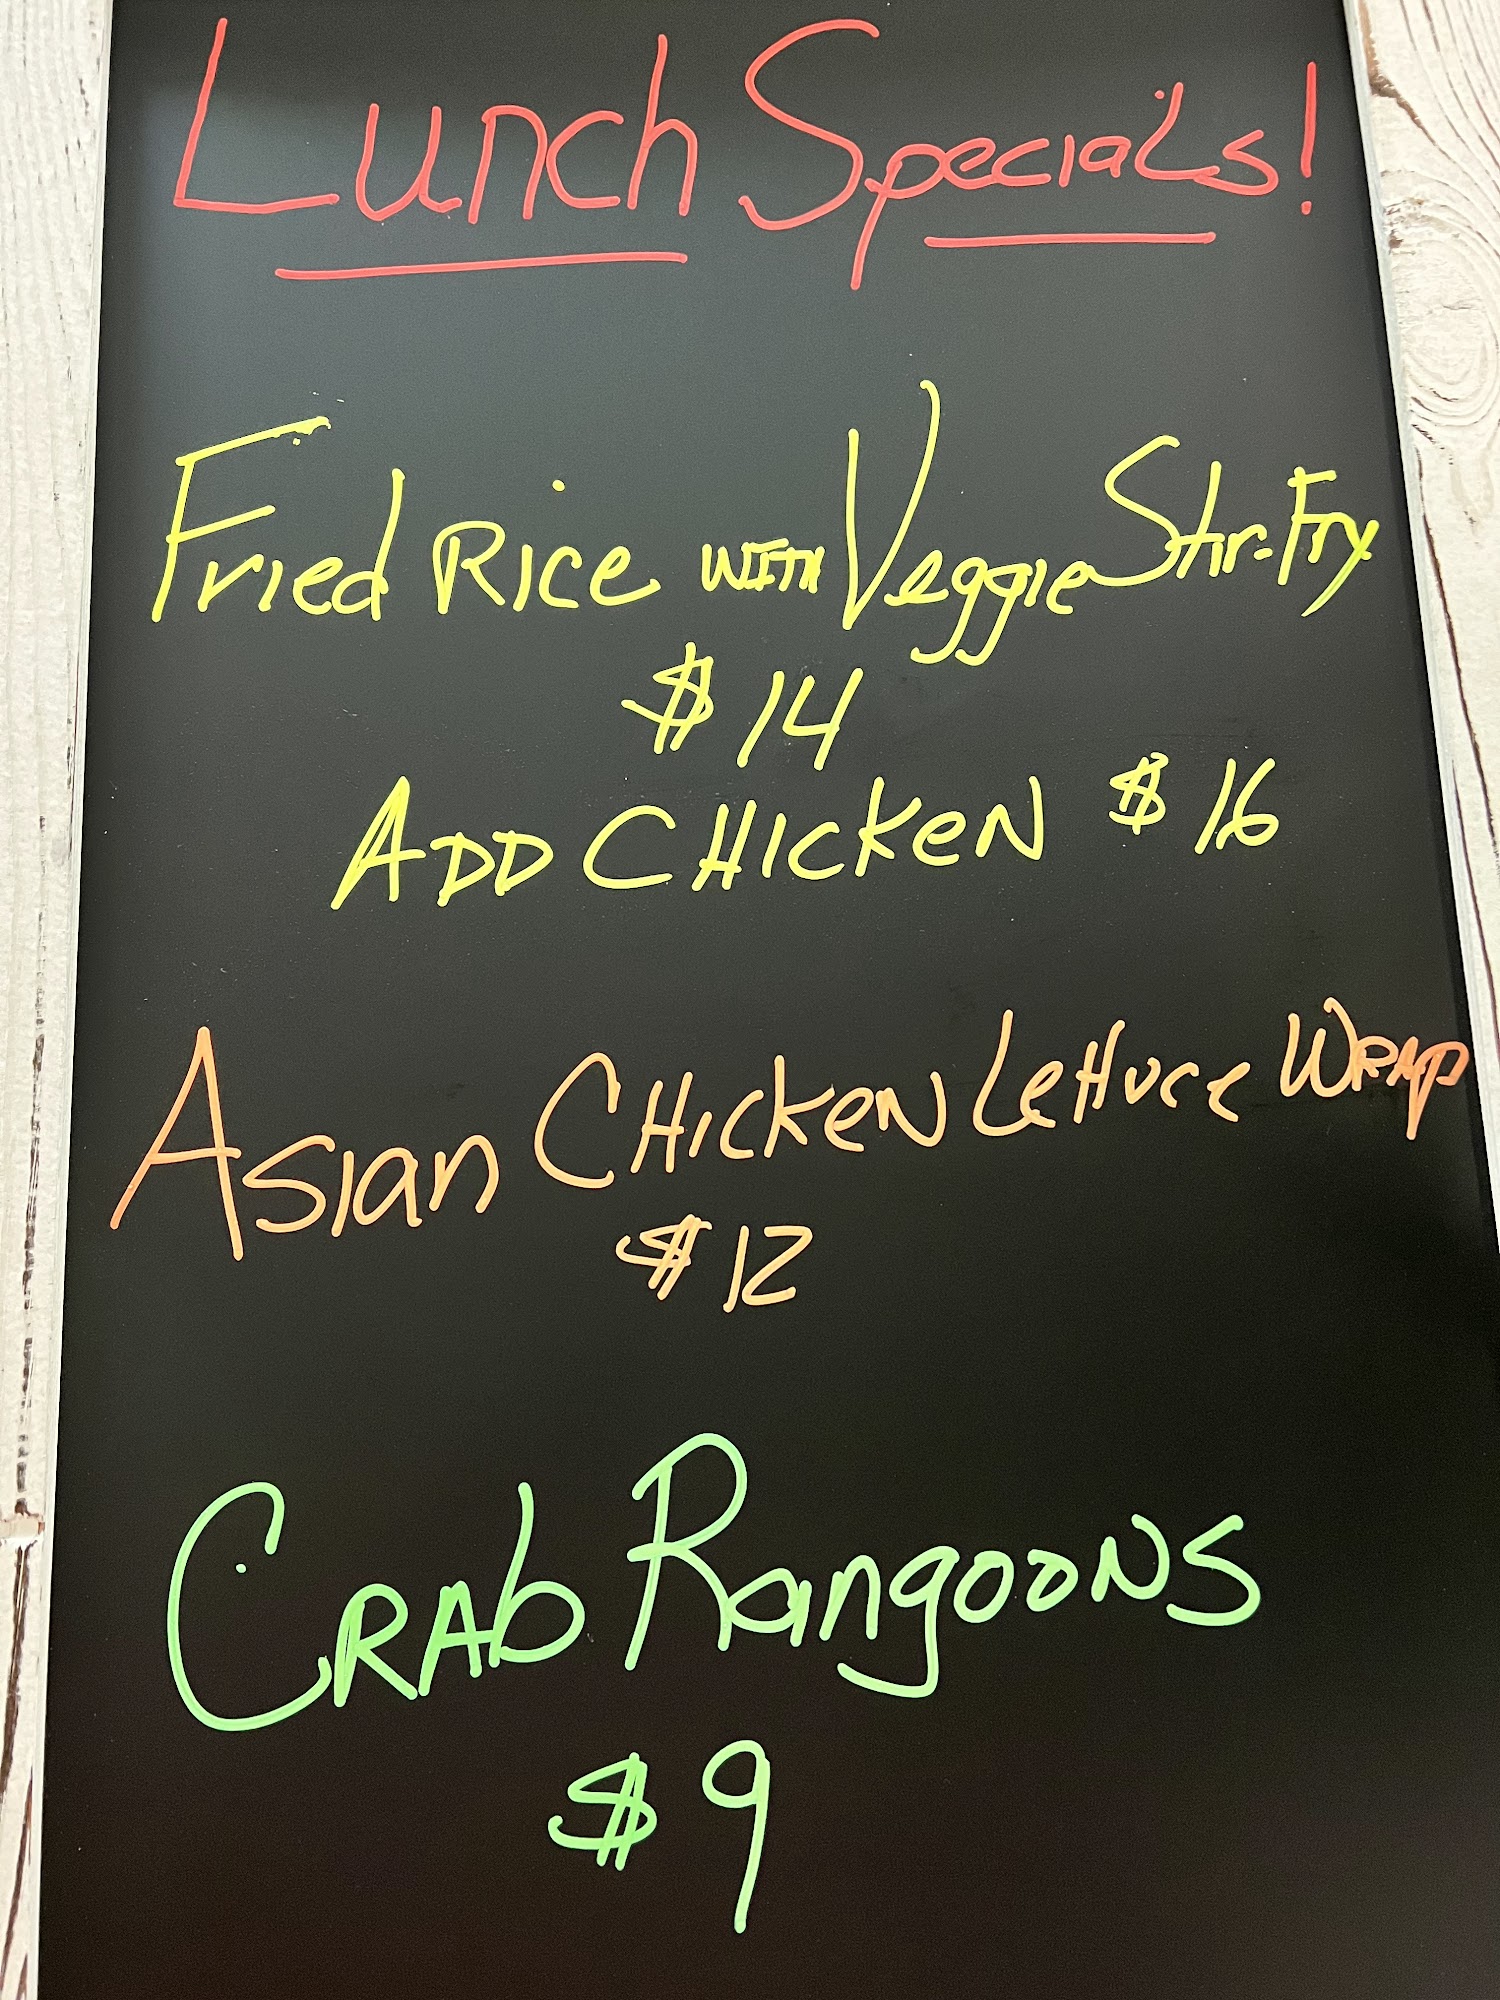 Lunch Specials!
Fried Rice with Veggie Stir-Fry
$14
Add Chicken $16
Asian Chicken Lettuce Wrap
$12
Crab Rangoons
$9